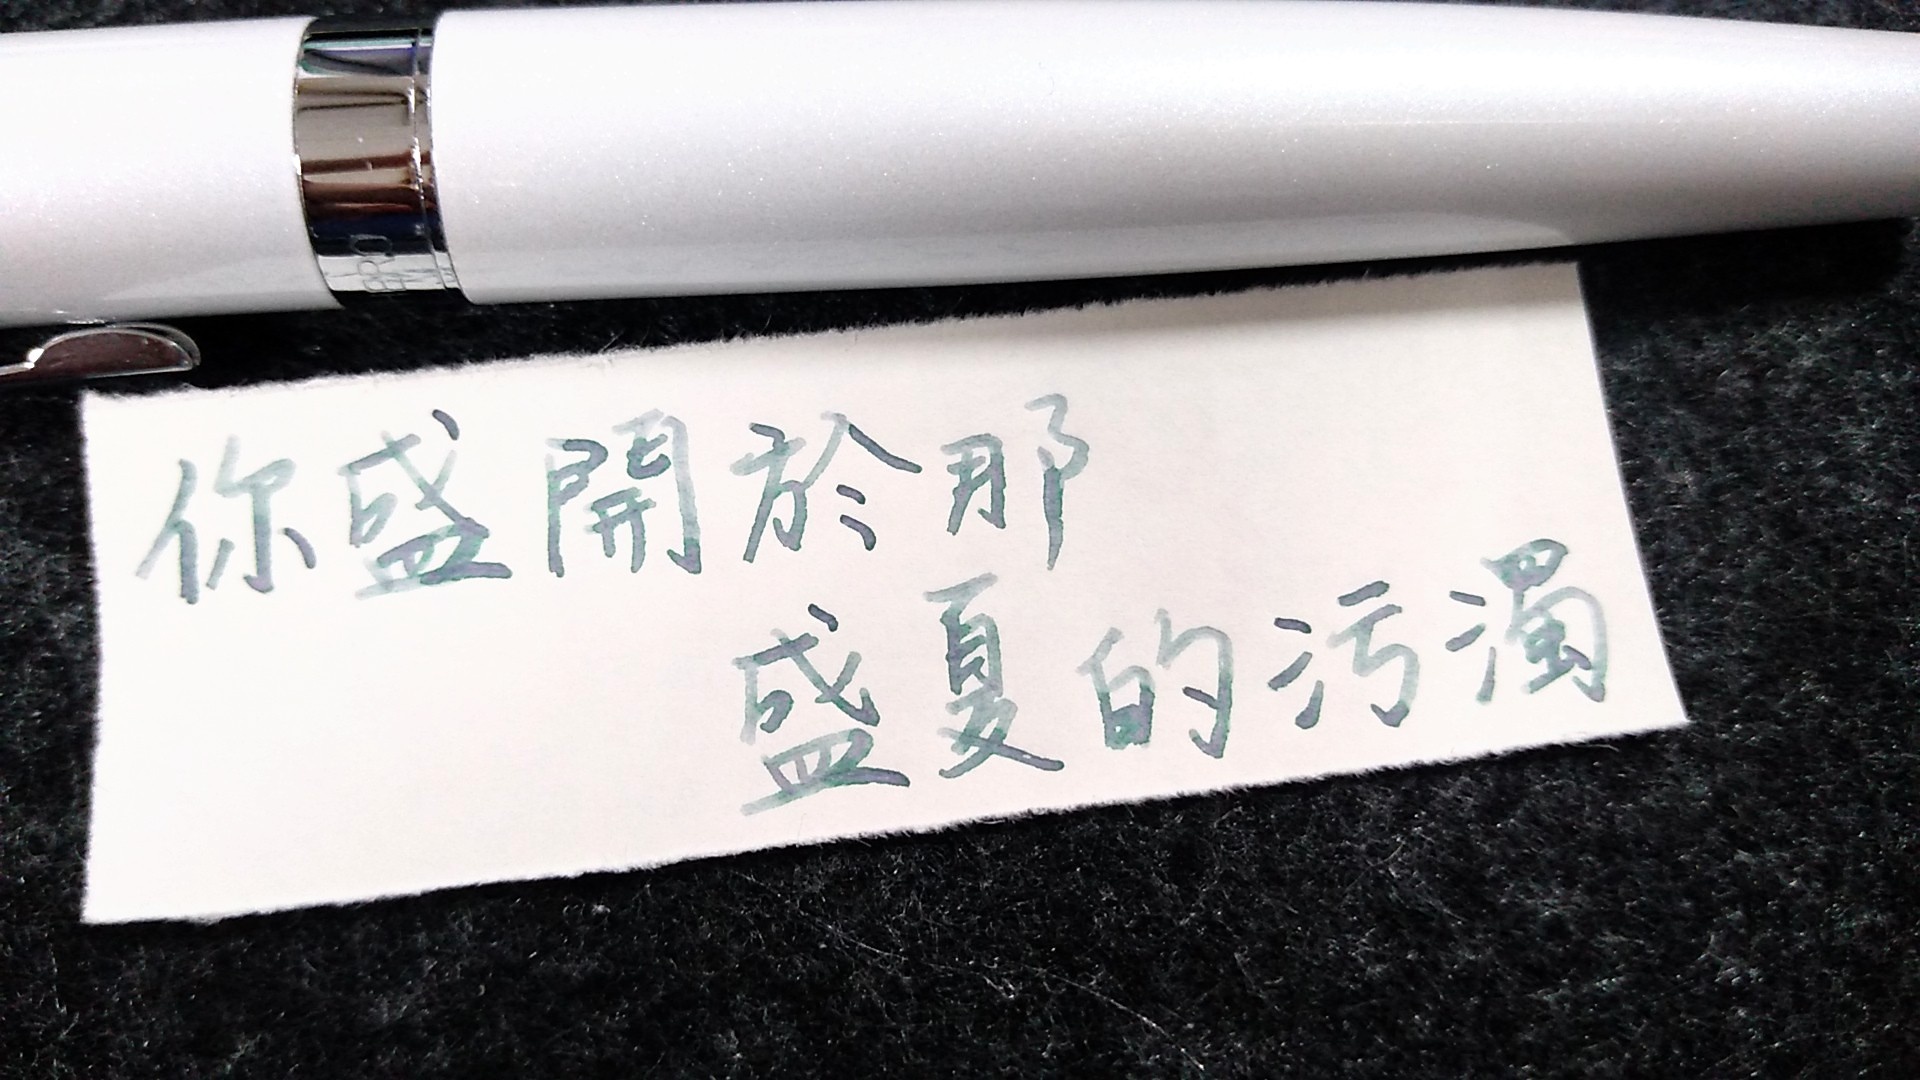 你盛開於那
盛夏的污濁